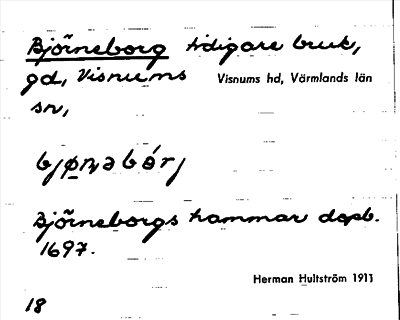 Björneborg tidigare bruk,
gd, Visnums Visnums hd, Värmlands län
sn,
bjø̱n̩əbórj
Björneborgs hammar dopb.
1697.
Herman Hultström 1911
18